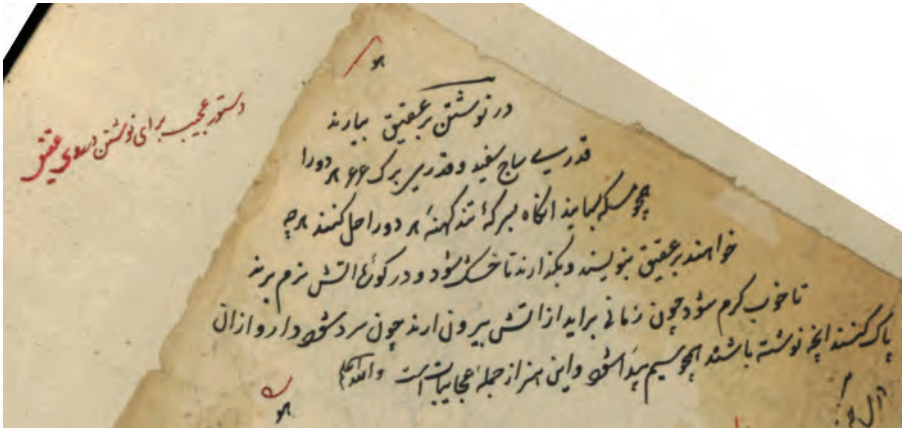 دستور عجیب برای نوشتن در روی عقیق
در نوشتن بر عقیق بیارند
قدری ساج سفید و قدری برک ۶۶ هر دورا
همچو سکه بسایند انکاه بسرکهٔ تند کهنه هر دو را حل کنند هرچه
خواهند بر عقیق بنویسند و بکذارند تا خشک شود و در کورهٔ اتش نرم برند
تا خوب کرم شود چون زمانی براید از اتش بیرون ارند چون سرد شود دارو از ان
پاک کنند انچه نوشته باشند همچو سیم پیدا شود و این هنر از جمله عجایبات است والله اعلم